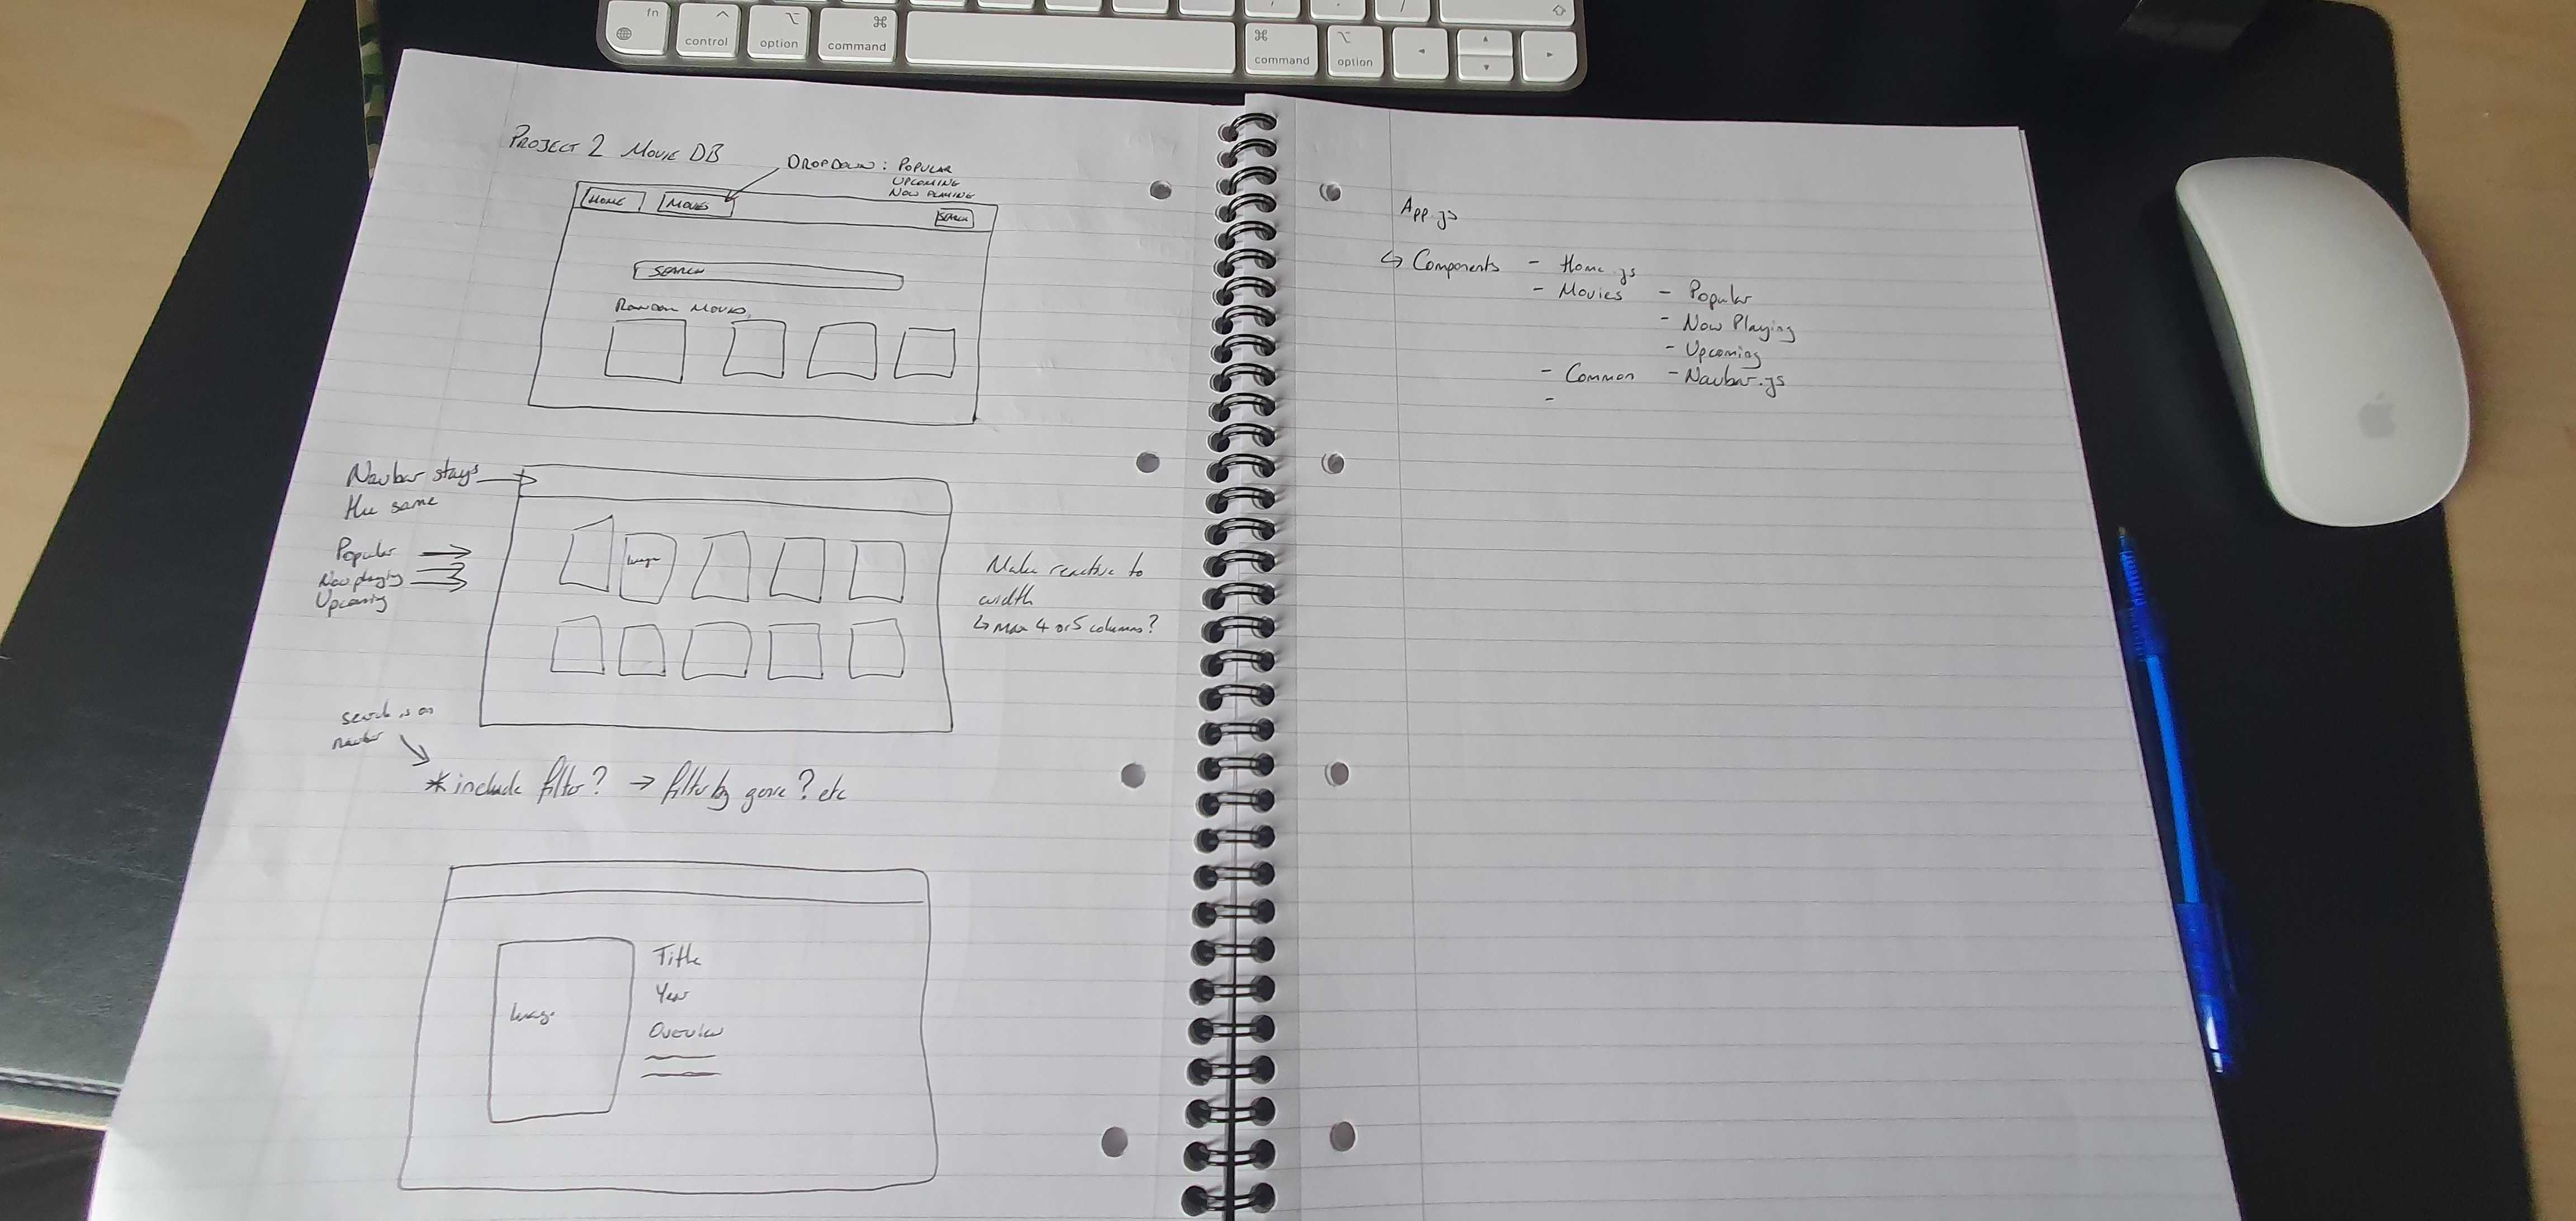 fn
control
option
command
command
option
PROJECT 2 MOVIE DB
DROPDOWN: POPULAR
UPCOMING
NOW PLAYING
HOME
MOVIES
SEARCH
SEARCH
RANDOM MOVIES
Navbar stays
the same
Popular
Now playing
Upcoming
Image
Make reactive to
width
↳ Max 4 or 5 columns?
search is on
navbar
* include filter? → filter by genre? etc
Image
Title
Year
Overview
App.js
↳ Components - Home.js
- Movies - Popular
- Now Playing
- Upcoming
- Common - Navbar.js
-